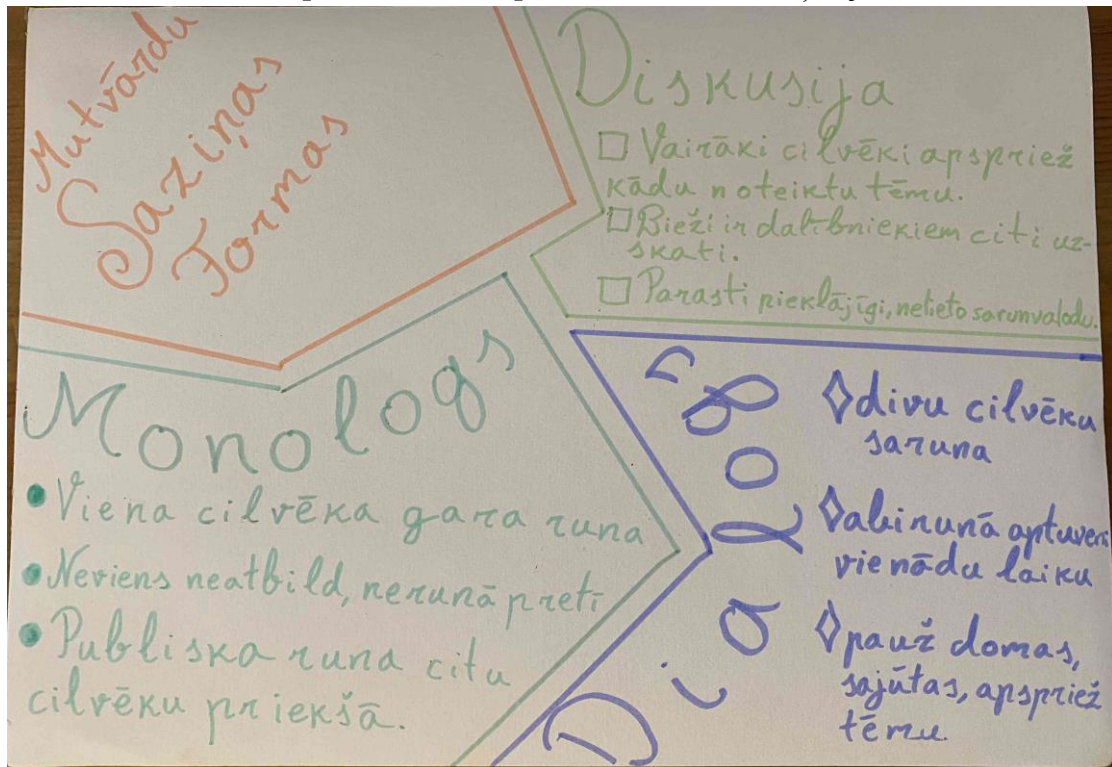 Mutvārdu
Saziņas
Formas
Diskusija
Vairāki cilvēki apspriež
kādu noteiktu tēmu.
Bieži ir dalībniekiem citi uz-
skati.
Parasti pieklājīgi, nelieto sarunvalodu.
Monologs
Viena cilvēka gara runa
Neviens neatbild, nerunā pretī
Publiska runa citu
cilvēku priekšā.
Dialogs
divu cilvēku
saruna
abi runā aptuveni
vienādu laiku
pauž domas,
sajūtas, apspriež
tēmu.